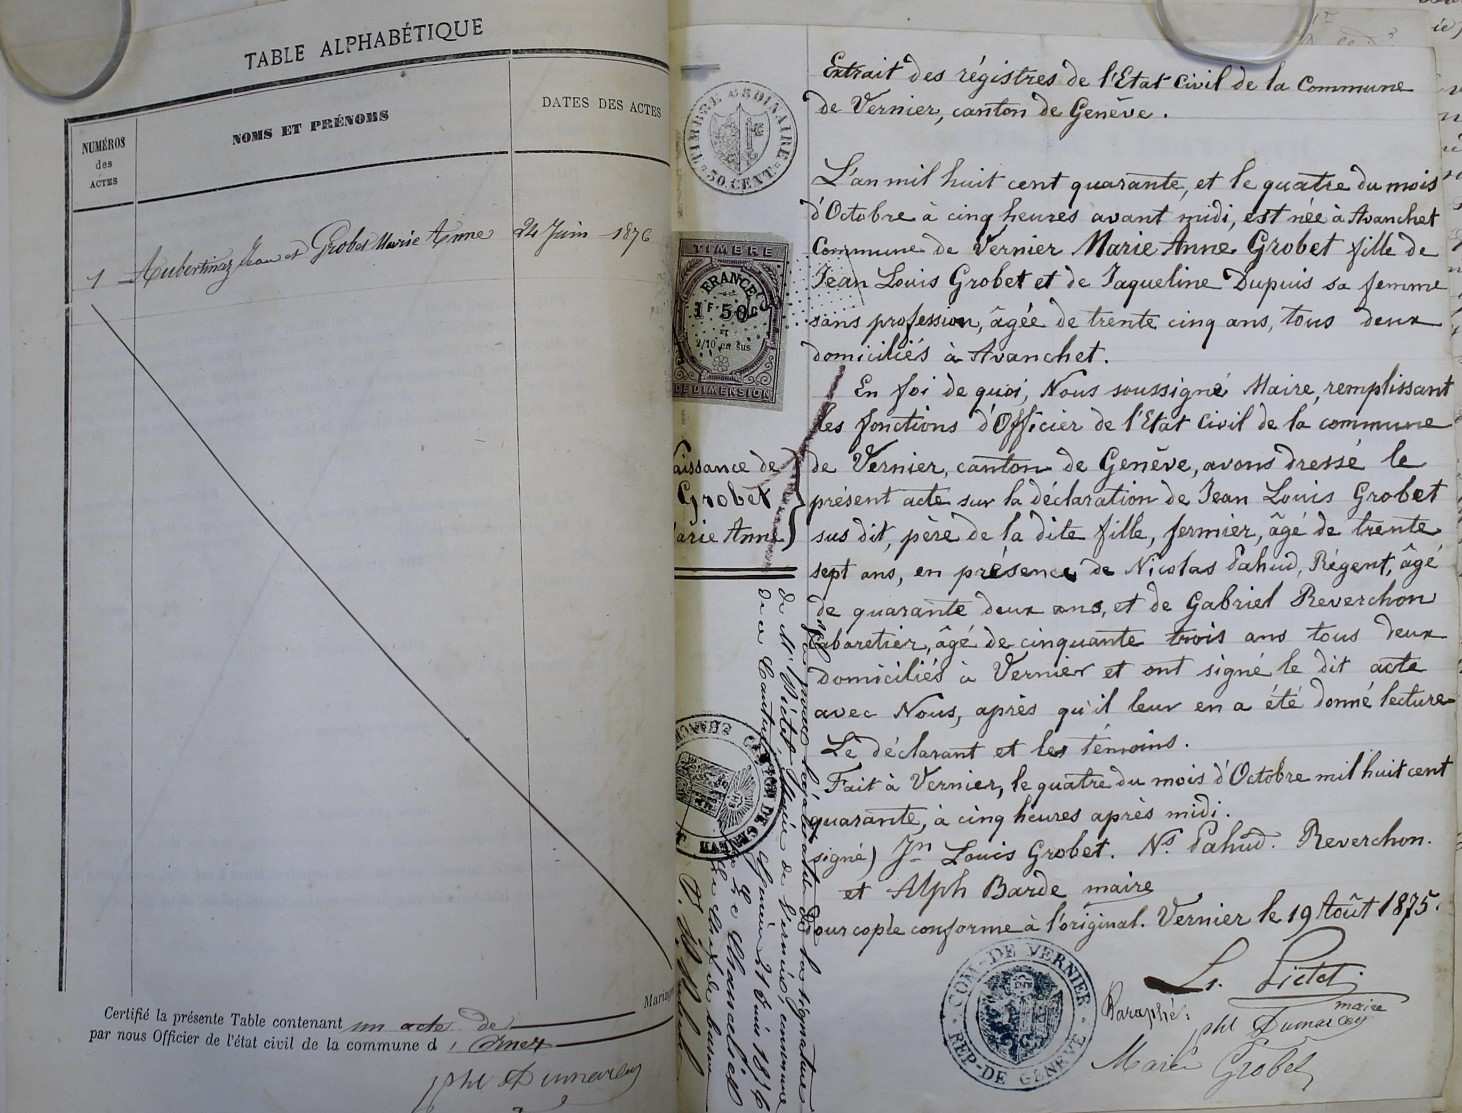 TABLE ALPHABÉTIQUE
NUMÉROS
des
ACTES
NOMS ET PRÉNOMS
DATES DES ACTES
1 Aubertinaz Jean et Grobet Marie Anne 24 Juin 1876
Mariage
Certifié la présente Table contenant un acte de
par nous Officier de l'état civil de la commune d' Ornex
jph Dumarcey
TIMBRE ORDINAIRE
50 CENT.
TIMBRE
FRANCE
1F 50c
2/10 en sus
DE DIMENSION
aissance de
Grobet
arie Anne
Extrait des régistres de l'Etat Civil de la Commune
de Vernier, canton de Genêve.
L'an mil huit cent quarante, et le quatre du mois
d'Octobre à cinq heures avant midi, est née à Avanchet
Commune de Vernier Marie Anne Grobet fille de
Jean Louis Grobet et de Jaqueline Dupuis sa femme
sans profession, âgée de trente cinq ans, tous deux
domiciliés à Avanchet.
En foi de quoi, Nous soussigné Maire, remplissant
les fonctions d'Officier de l'Etat Civil de la commune
de Vernier, canton de Genêve, avons dressé le
présent acte sur la déclaration de Jean Louis Grobet
sus dit, père de la dite fille, fermier, âgé de trente
sept ans, en présence de Nicolas Pahud, Régent, âgé
de quarante deux ans, et de Gabriel Reverchon
Cabaretier, âgé de cinquante trois ans tous deux
domiciliés à Vernier et ont signé le dit acte
avec Nous, après qu'il leur en a été donné lecture
Le déclarant et les témoins.
Fait à Vernier, le quatre du mois d'Octobre mil huit cent
quarante, à cinq heures après midi.
signé) Jn Louis Grobet. Ns Pahud. Reverchon.
et Alph Barde maire
our copie conforme à l'original. Vernier le 19 Août 1875.
L. Pictet
maire
Paraphé:
jph Dumarcey
Marie Grobet
COM-DE VERNIER
REP-DE GENÈVE
légalisation de la signature
de Mr Pictet Maire de Vernier, commune
de ce Canton
Genève 21 Juin 1876
Le Chancelier
CANTON DE GENÈVE